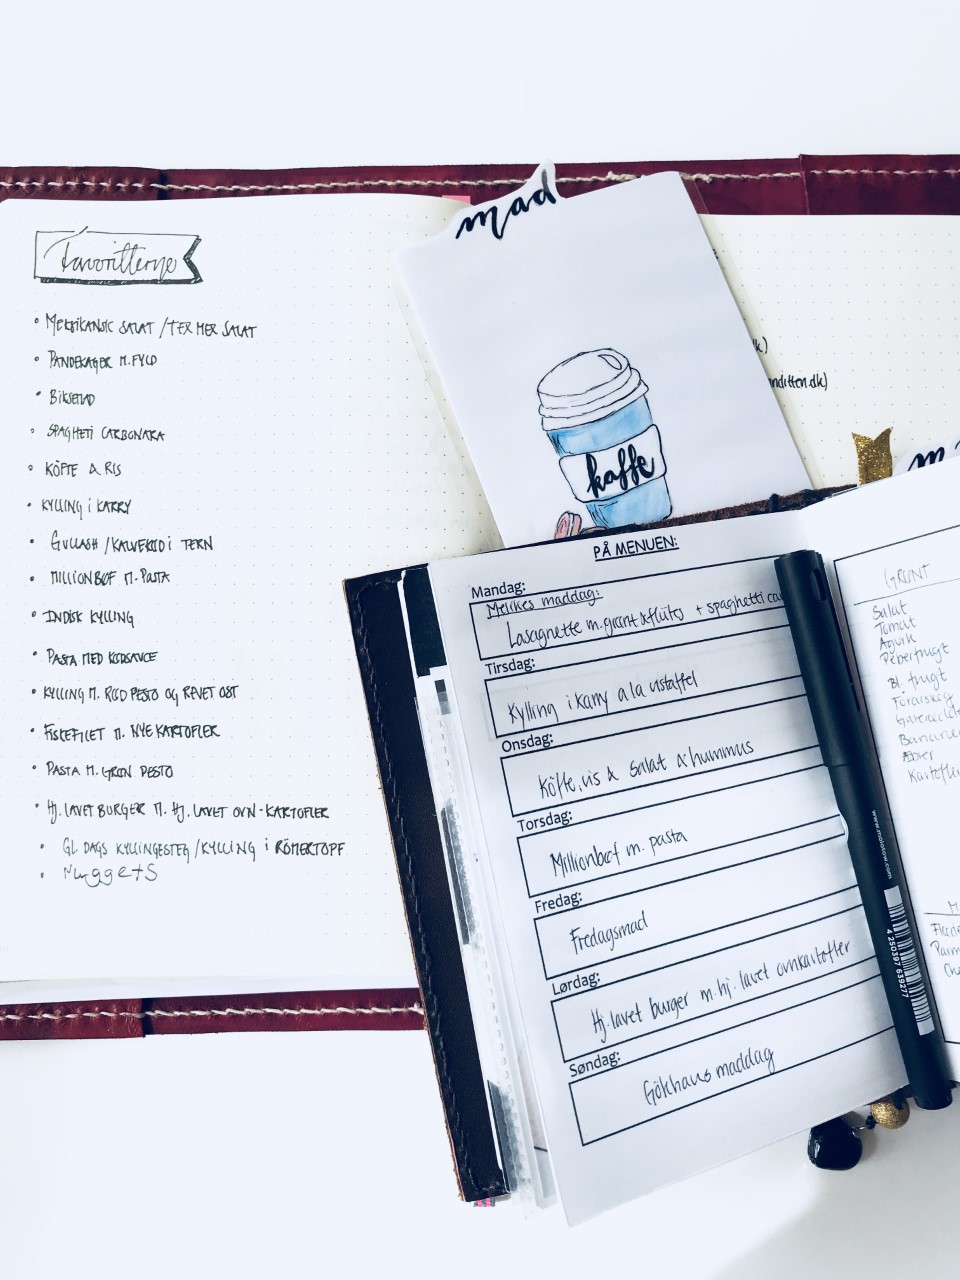 Favoritterne
• MEKSIKANSK SALAT / TEX MEX SALAT
• PANDEKAGER M. FYLD
• BIKSEMAD
• SPAGHETI CARBONARA
• KÖFTE & RIS
• KYLLING i KARRY
• GULLASH / KALVEKØD i TERN
• MILLIONBØF M. PASTA
• INDISK KYLLING
• PASTA MED KØDSAUCE
• KYLLING M. RØD PESTO OG REVET OST
• FISKEFILET M. NYE KARTOFLER
• PASTA M. GRØN PESTO
• HJ. LAVET BURGER M. HJ. LAVET OVN-KARTOFLER
• GL. DAGS KYLLINGESTEG / KYLLING i RÖMERTOPF
• Nuggets
mad
kaffe
PÅ MENUEN:
Mandag:
Melikes maddag:
Lasagnette m. grønt & flûtes + spaghetti
Tirsdag:
Kylling i karry a la
Onsdag:
Köfte, ris & salat & hummus
Torsdag:
Millionbøf m. pasta
Fredag:
Fredagsmad
Lørdag:
Hj. lavet burger m. hj. lavet ovnkartofler
Søndag:
Gökhans maddag
GRØNT
Salat
Tomat
Agurk
Peberfrugt
Bl. frugt
Forårsløg
Bananer
Æbler
Kartofler
www.molotow.com
4 250397 639277